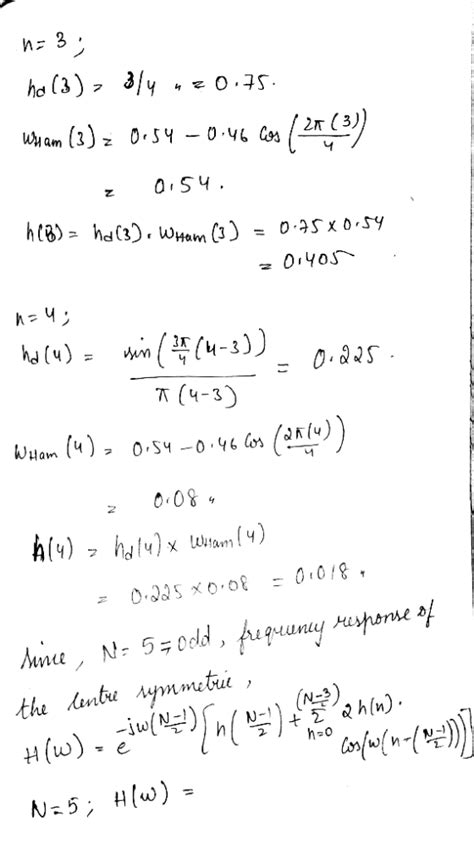 n = 3 ;
hd(3) = 3/4 = 0.75.
WHam(3) = 0.54 - 0.46 Cos(2π(3)/4)
= 0.54.
h(3) = hd(3). WHam(3) = 0.75 x 0.54
= 0.405
n = 4 ;
hd(4) = sin(3π/4 (4-3)) / π(4-3) = 0.225.
WHam(4) = 0.54 - 0.46 Cos(2π(4)/4)
= 0.08
h(4) = hd(4) x WHam(4)
= 0.225 x 0.08 = 0.018
Since, N = 5 = odd, frequency response of
the centre symmetric,
H(w) = e^{-jw(N-1/2)} [h(N-1/2) + Σ_{n=0}^{(N-3/2)} 2h(n). Cos(w(n-(N-1/2)))]
N=5; H(w) =